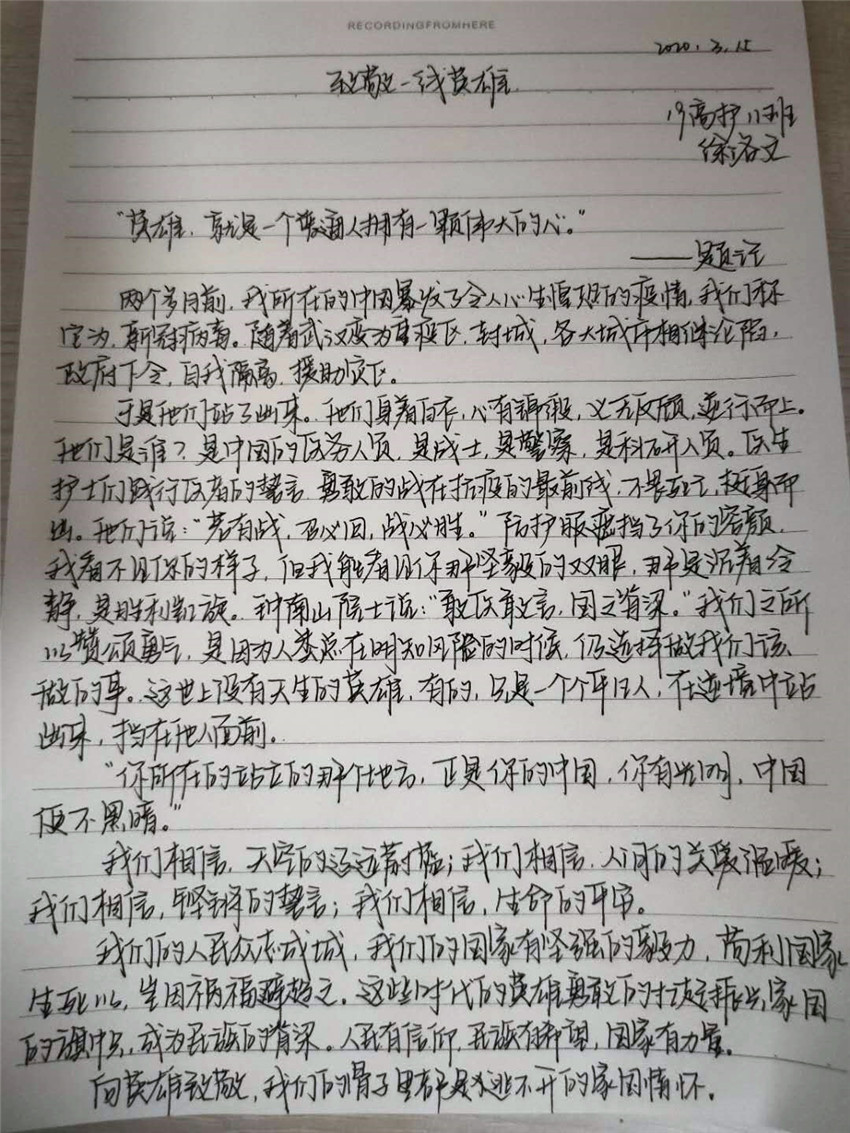 RECORDINGFROMHERE
2020.3.15
致敬一线英雄
19高护11班
徐洛文
“英雄，就是一个普通人拥有一颗伟大的心。”
——题记
两个多月前，我所在的中国暴发了令人心生惶恐的疫情，我们称
它为，新冠病毒。随着武汉变为重疫区，封城，各大城市相继沦陷，
政府下令，自我隔离，援助灾区。
于是他们站了出来。他们身着白衣，心有锦缎，义无反顾，逆行而上。
他们是谁？是中国的医务人员，是战士，是警察，是科研人员。医生
护士们践行医者的誓言，勇敢的战在抗疫的最前线，不畏死亡，挺身而
出。他们说：“若有战，召必回，战必胜。”防护服遮挡了你的容颜，
我看不见你的样子，但我能看见你那坚毅的双眼，那是沉着冷
静，是胜利凯旋。钟南山院士说：“敢医敢言，国之脊梁。”我们之所
以赞颂勇气，是因为人类总在明知风险的时候，仍选择做我们该
做的事。这世上没有天生的英雄，有的，只是一个个平凡人，在逆境中站
出来，挡在他人面前。
“你所在的站立的那个地方，正是你的中国，你有光明，中国
便不黑暗。”
我们相信，天空的辽远蔚蓝；我们相信，人间的关爱温暖；
我们相信，铿锵的誓言；我们相信，生命的平安。
我们的人民众志成城，我们的国家有坚强的毅力，苟利国家
生死以，岂因祸福避趋之。这些时代的英雄勇敢的打起振兴家国
的旗帜，成为民族的脊梁。人民有信仰，民族有希望，国家有力量。
向英雄致敬，我们的骨子里都是逃不开的家国情怀。